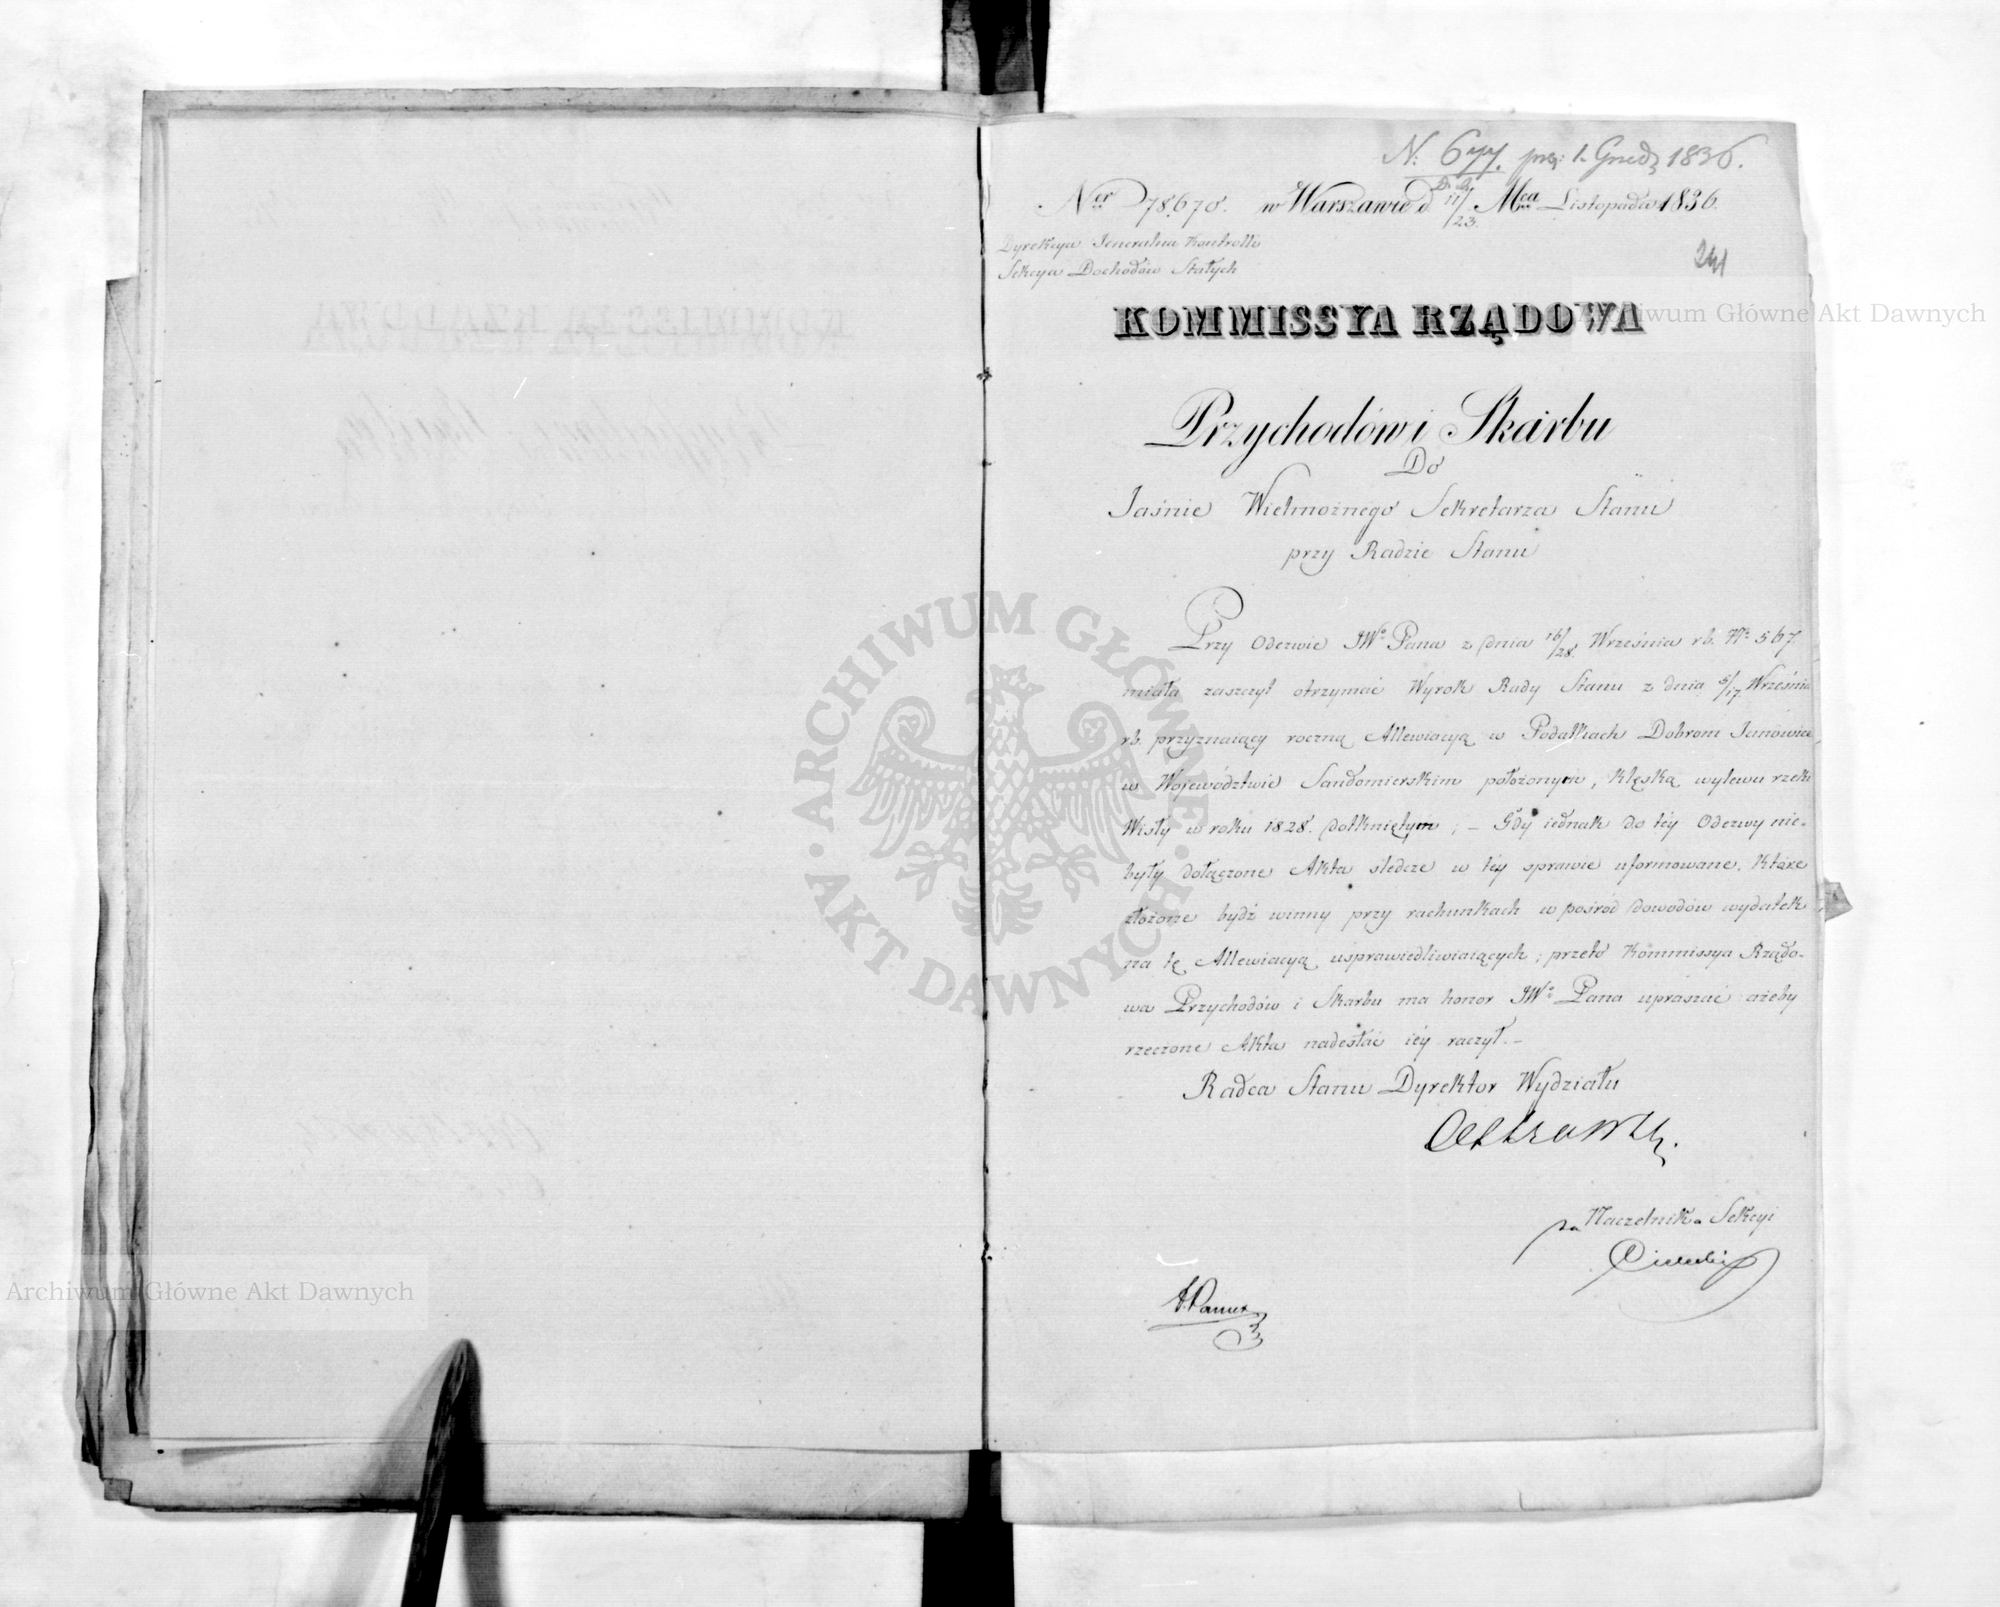 N: 677. prez: 1 Grudz 1836.
Ner 78670. w Warszawie d. 11/23. Mca Listopada 1836.
Dyrekcya Jeneralna Kontrolli
Sekcya Dochodów Stałych
241
KOMMISSYA RZĄDOWA
Przychodów i Skarbu
Do
Jaśnie Wielmożnego Sekretarza Stanu
przy Radzie Stanu
Przy Odezwie JWo Pana z dnia 16/28. Września rb. No 567.
miała zaszczyt otrzymać Wyrok Rady Stanu z dnia 5/17. Września
rb. przyznaiący roczną Allewiacyą w Podatkach Dobrom Janowice,
w Województwie Sandomierskim położonym, klęską wylewu rzeki
Wisły w roku 1828. dotkniętym; – Gdy iednak do téy Odezwy nie-
były dołączone Akta śledcze w téy sprawie uformowane, które
złożone bydź winny przy rachunkach w pośród dowodów wydatek
na tę Allewiacyą usprawiedliwiaiących; przeto Kommissya Rządo-
wa Przychodów i Skarbu ma honor JWo Pana upraszać ażeby
rzeczone Akta nadesłać iéy raczył. –
Radca Stanu Dyrektor Wydziału
za Naczelnika Sekcyi
ARCHIWUM GŁÓWNE AKT DAWNYCH
Archiwum Główne Akt Dawnych
Archiwum Główne Akt Dawnych